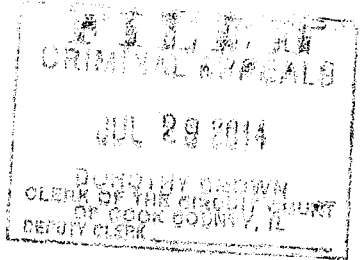 CRIMINAL APPEALS
JUL 29 2014
DOROTHY BROWN
CLERK OF THE CIRCUIT COURT
OF COOK COUNTY, IL
DEPUTY CLERK